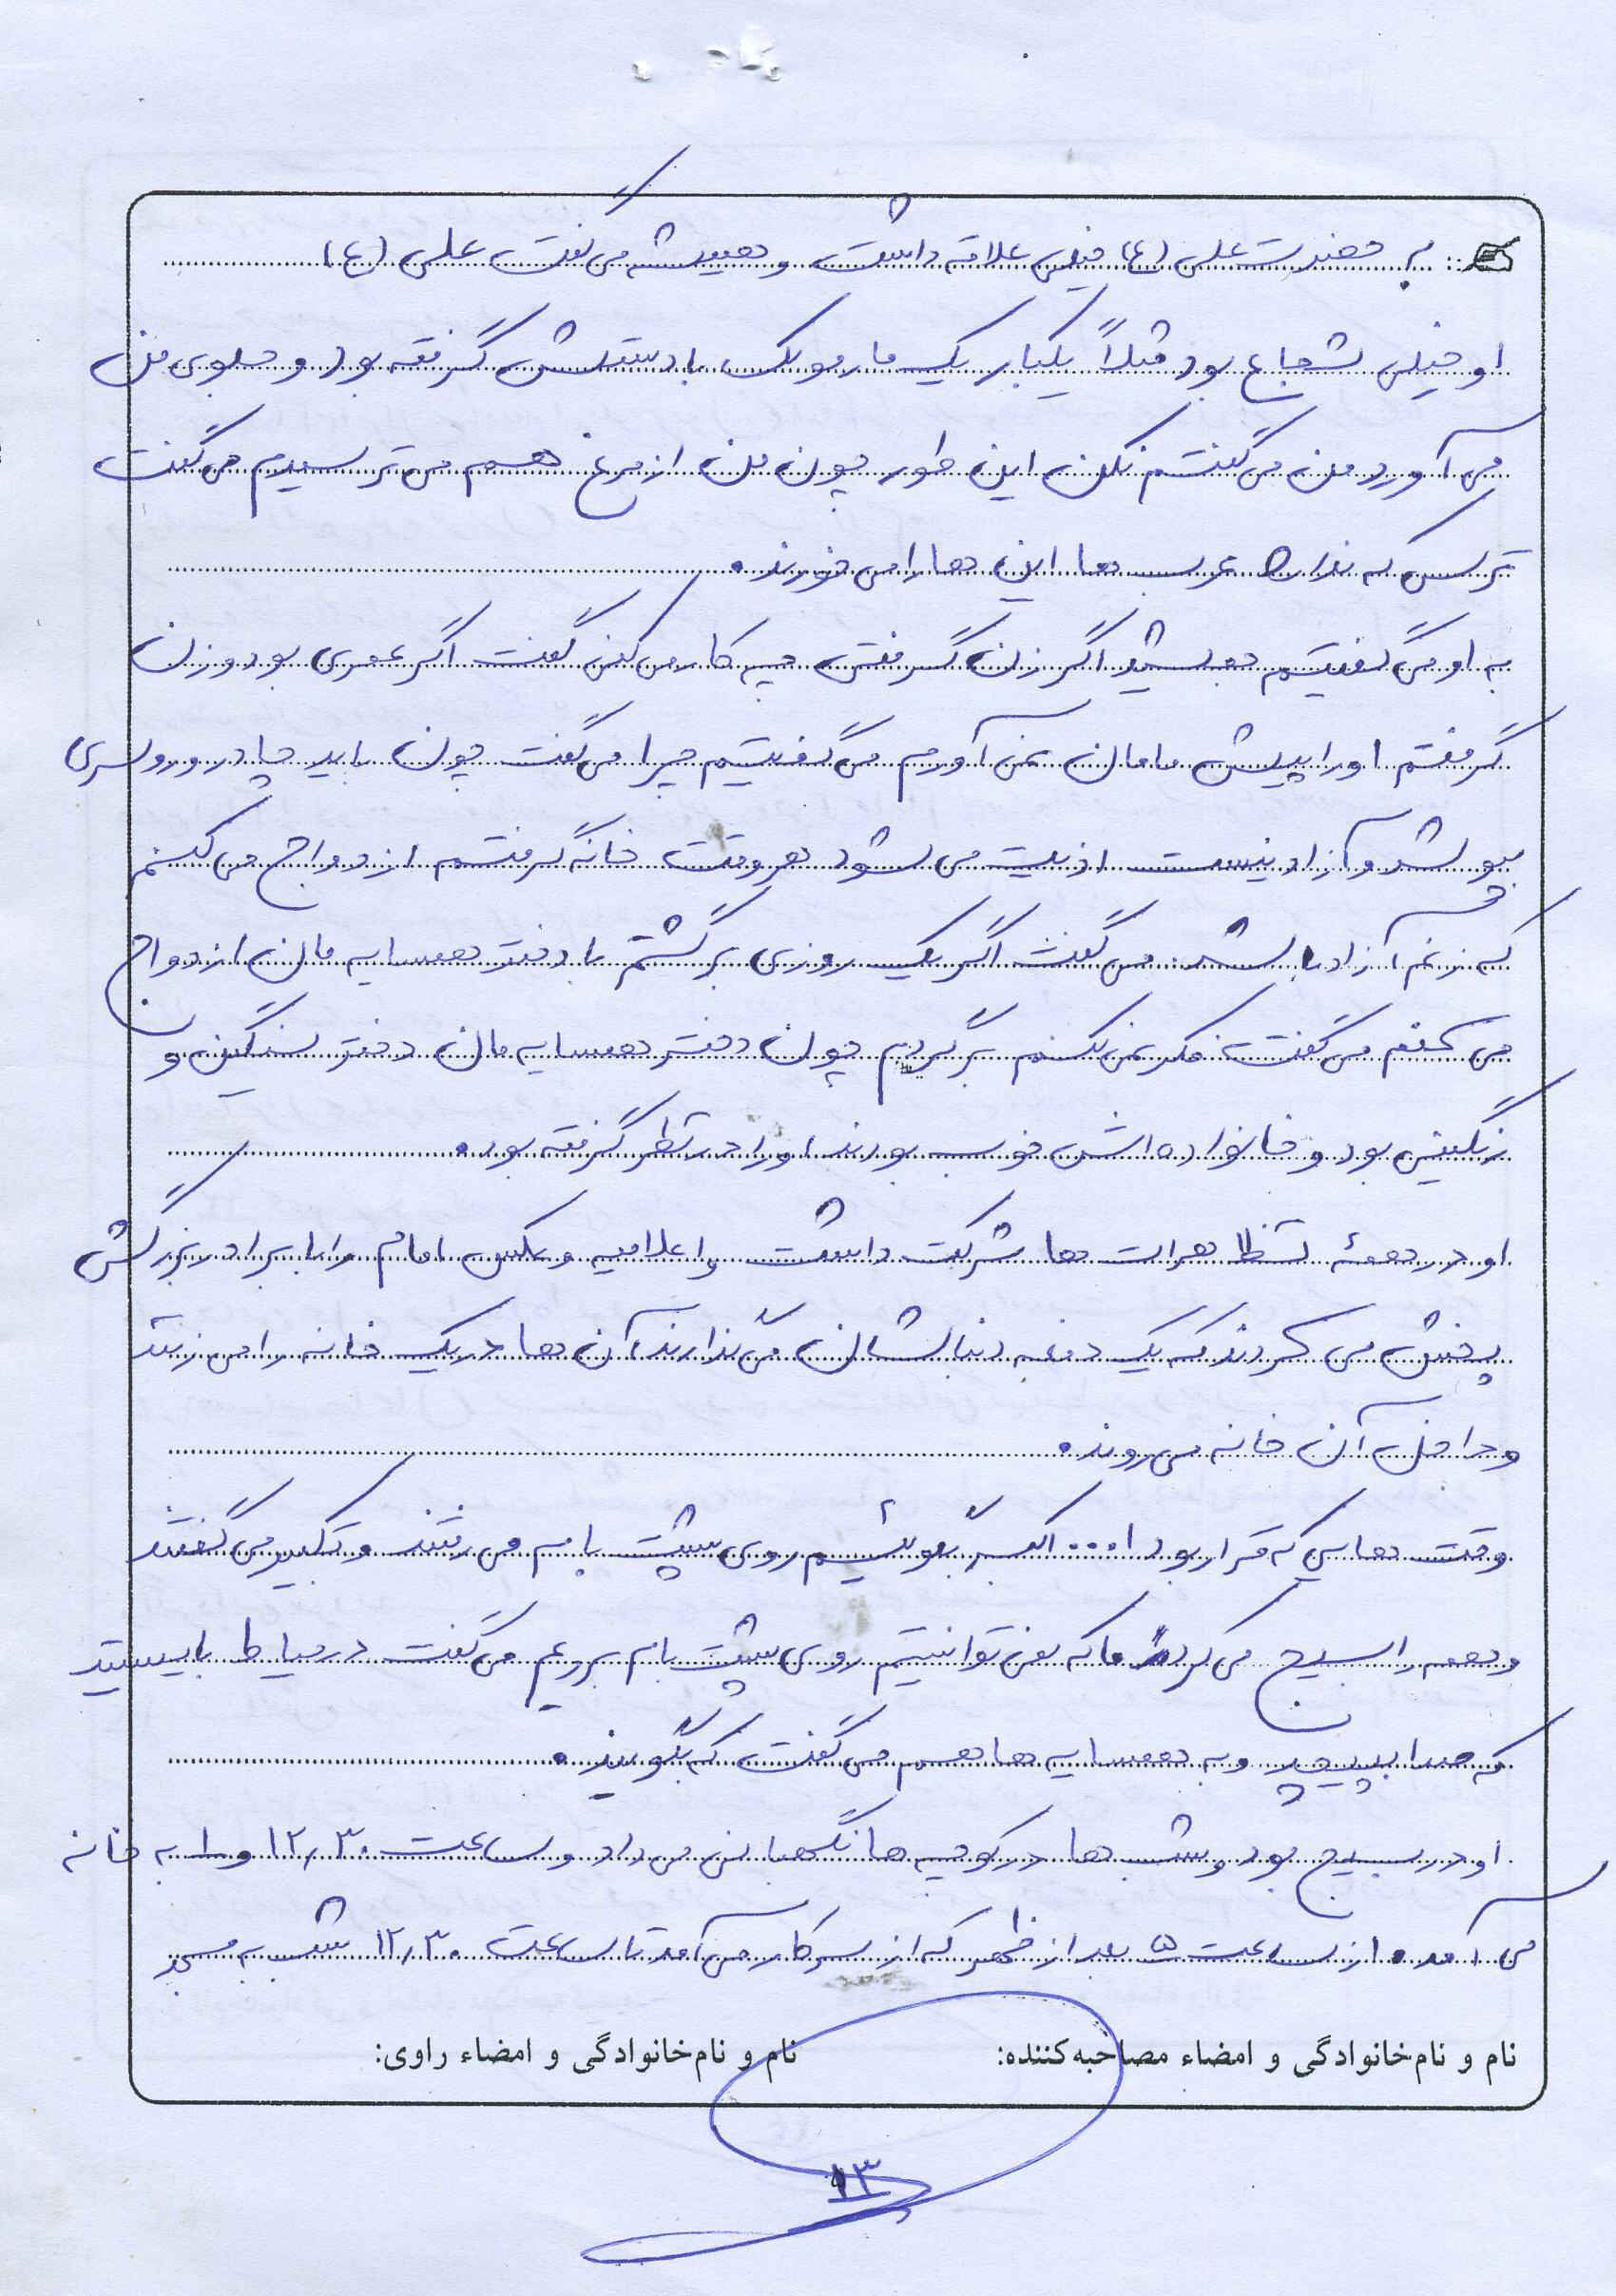 به حضرت علی (ع) خیلی علاقه داشت و همیشه می گفت علی (ع)
او خیلی شجاع بود مثلاً یکبار یک مارمولک با دستش گرفته بود و جلوی من
می آورد من می گفتم نکن این طور چون من از مرغ هم می ترسیدم می گفت
ترس که ندارد عرب ها این ها را می خورند.
به او می گفتیم جمشید اگر زن گرفتی چه کار می کنی گفت اگر عمری بود و زن
گرفتم او را پیش مامان نمی آورم می گفتیم چرا می گفت چون باید چادر و روسری
بپوشد و آزاد نیست اذیت می شود هر وقت خانه گرفتم ازدواج می کنم
که زنم آزاد باشد. می گفت اگر یک روزی برگشتم با دختر همسایه مان ازدواج
می کنم می گفت فکر نمی کنم برگردم چون دختر همسایه مان دختر سنگین و
رنگینی بود و خانواده اش خوب بودند او را در نظر گرفته بود.
او در همهٔ تظاهرات ها شرکت داشت و اعلامیه و عکس امام را با برادر بزرگش
پخش می کردند که یک دفعه دنبالشان می ندارند آن ها در یک خانه را می زنند
و داخل آن خانه می روند.
وقت هایی که قرار بود ا... اکبر بگوئیم روی پشت بام می رفتند و تکبیر می گفتند
و همه را بسیج می کرد ما که نمی توانستیم روی پشت بام برویم می گفت در حیاط بایستید
که صدا بپیچد و به همسایه ها هم می گفت که بگویند.
او در بسیج بود و شب ها در کوچه ها نگهبانی می داد و ساعت ۱۲/۳۰ و ۱ به خانه
می آمد. از ساعت ۵ بعد از ظهر که از سر کار می آمد تا ساعت ۱۲/۳۰ شب به مسجد
نام و نام‌خانوادگی و امضاء مصاحبه‌کننده: نام و نام‌خانوادگی و امضاء راوی:
۱۳